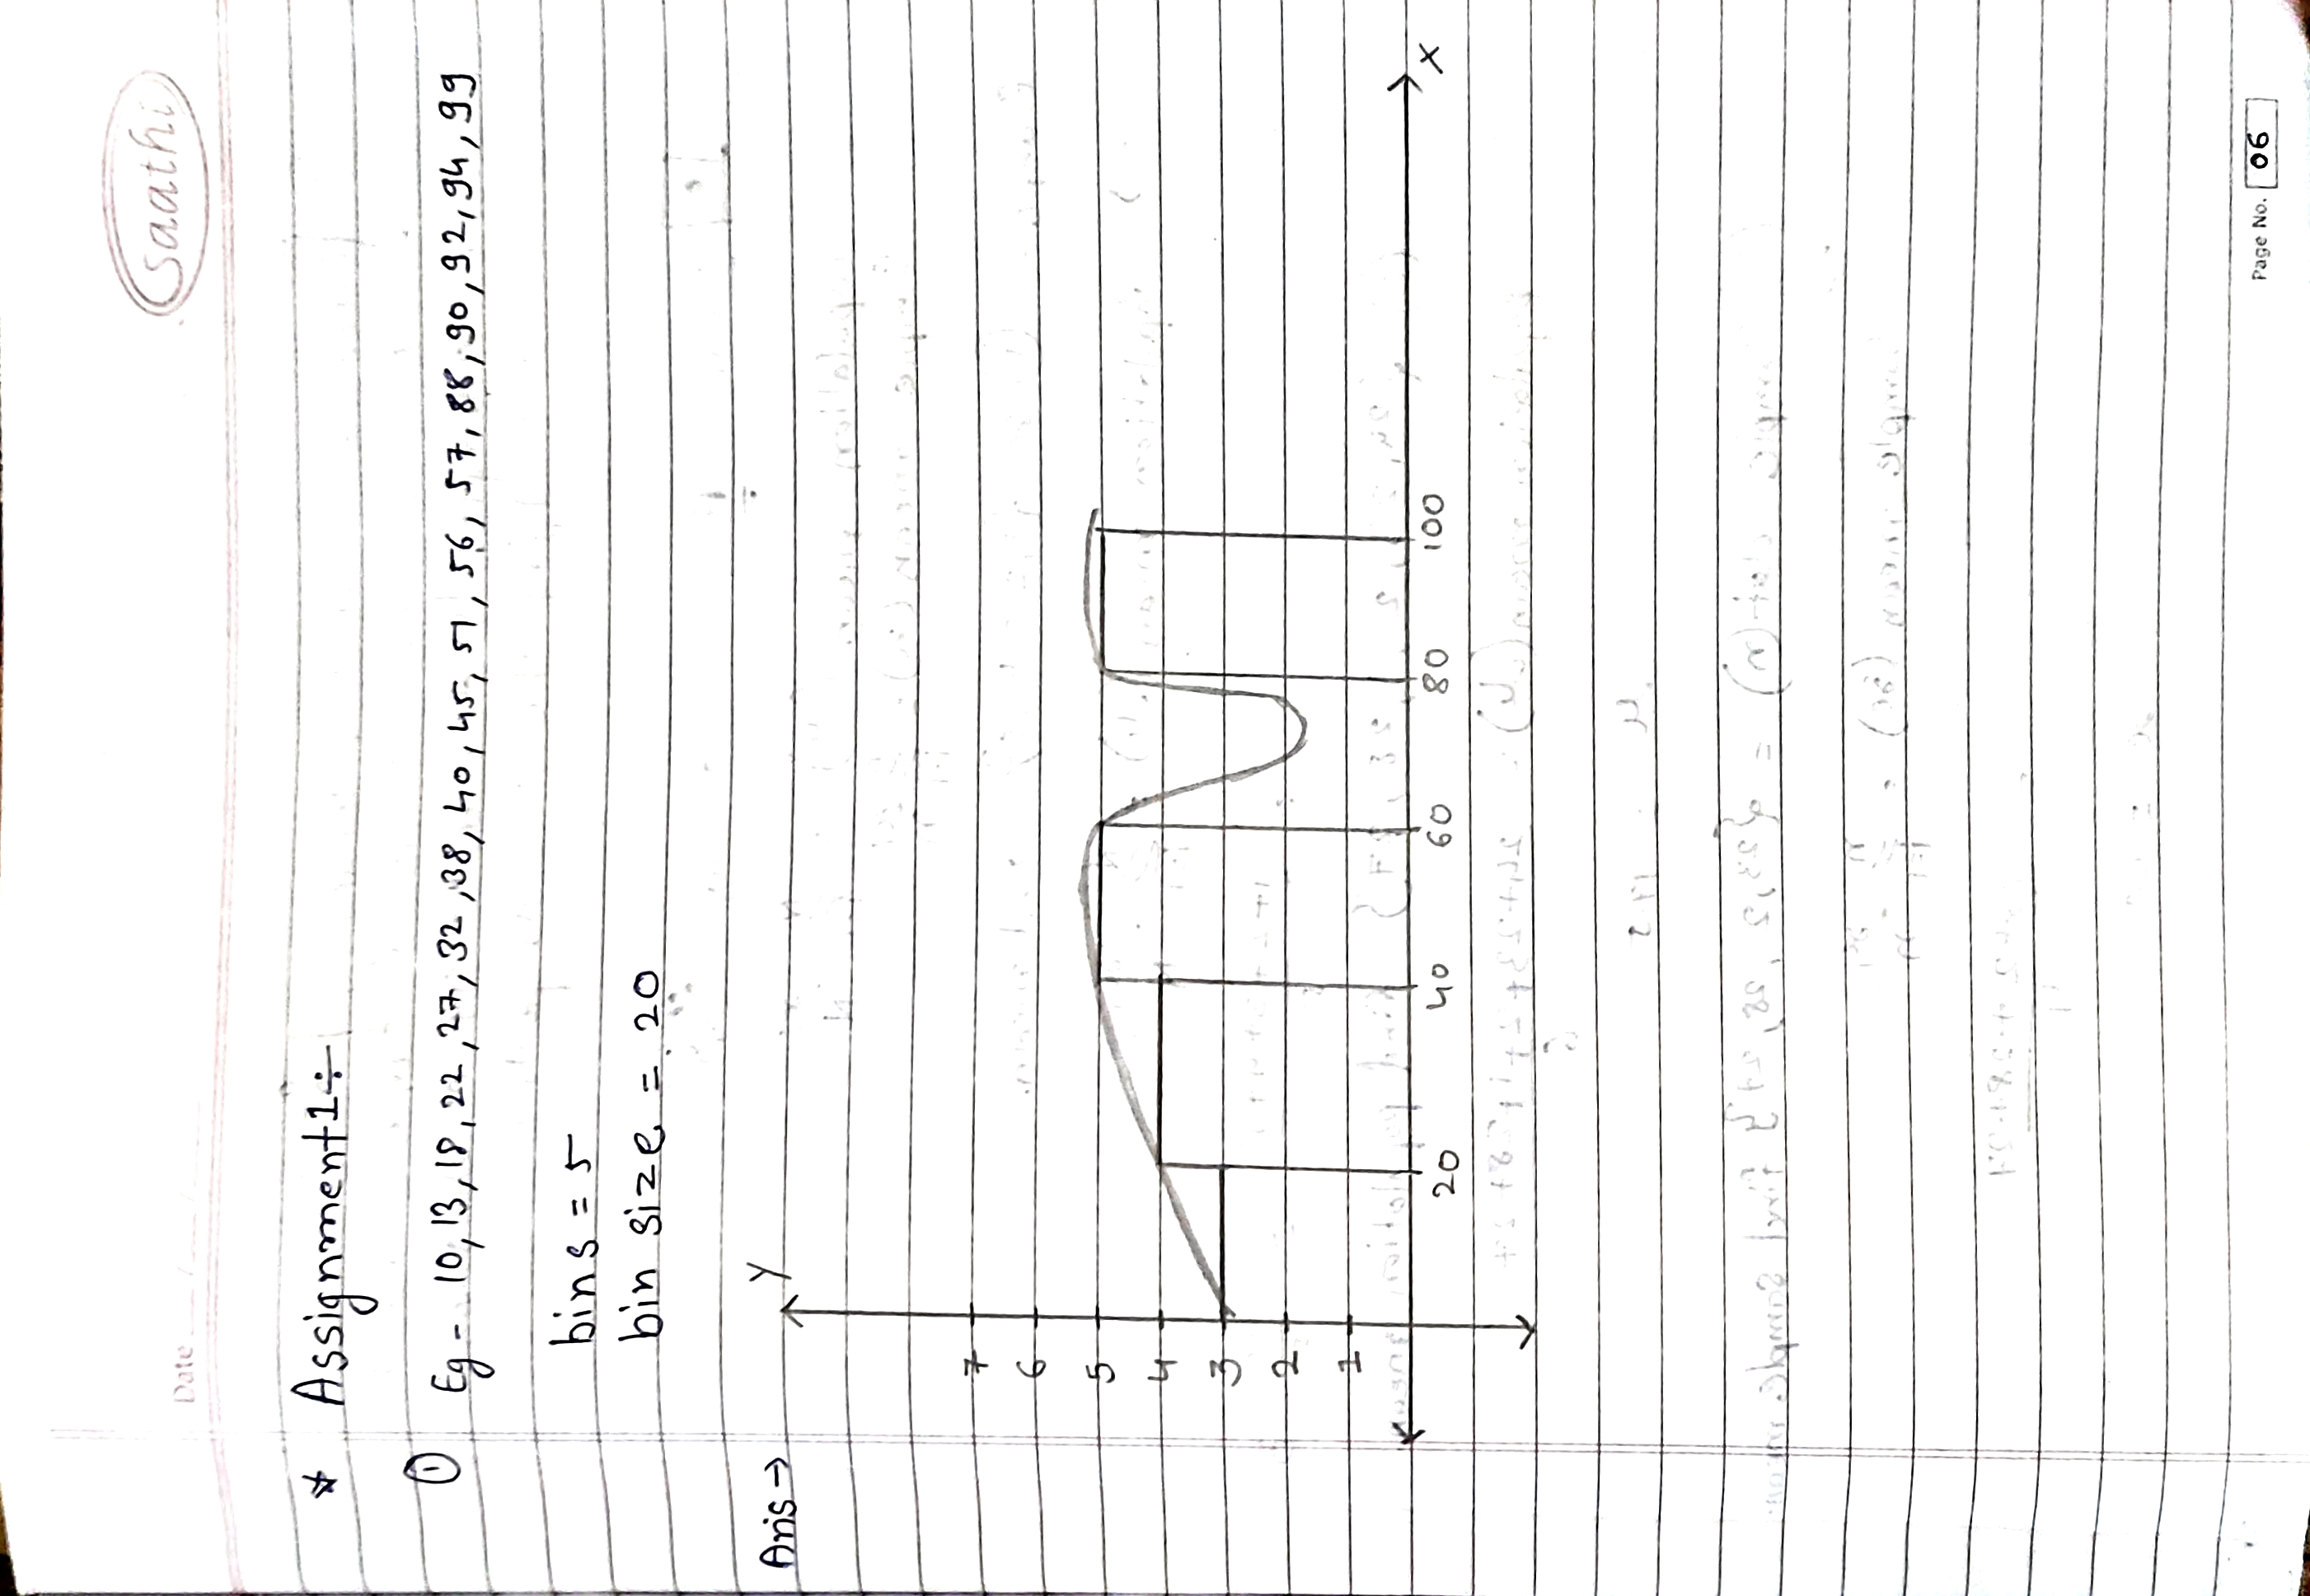 saathi
Date
* Assignment 1 ÷
① Eg - 10, 13, 18, 22, 27, 32, 38, 40, 45, 51, 56, 57, 88, 90, 92, 94, 99
bins = 5
bin size = 20
Ans →
Y
7
6
5
4
3
2
1
20 40 60 80 100 X
Page No. 06